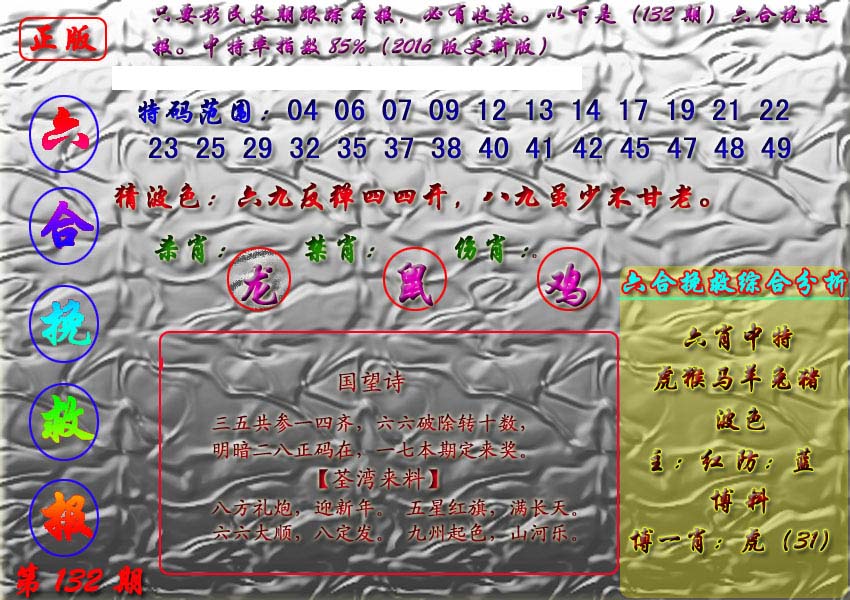 正版
只要彩民长期跟踪本报，必有收获。以下是（132期）六合挽救
报。中特率指数85%（2016版更新版）
六合挽救报
第132期
特码范围：04 06 07 09 12 13 14 17 19 21 22
23 25 29 32 35 37 38 40 41 42 45 47 48 49
猜波色：六九反弹四四开，八九虽少不甘老。
杀肖：龙 禁肖：鼠 伤肖：鸡
国望诗
三五共参一四齐，六六破除转十数，
明暗二八正码在，一七本期定来奖。
【荃湾来料】
八方礼炮，迎新年。 五星红旗，满长天。
六六大顺，八定发。 九州起色，山河乐。
六合挽救综合分析
六肖中特
虎猴马羊兔猪
波色
主：红防：蓝
博料
博一肖：虎（31）